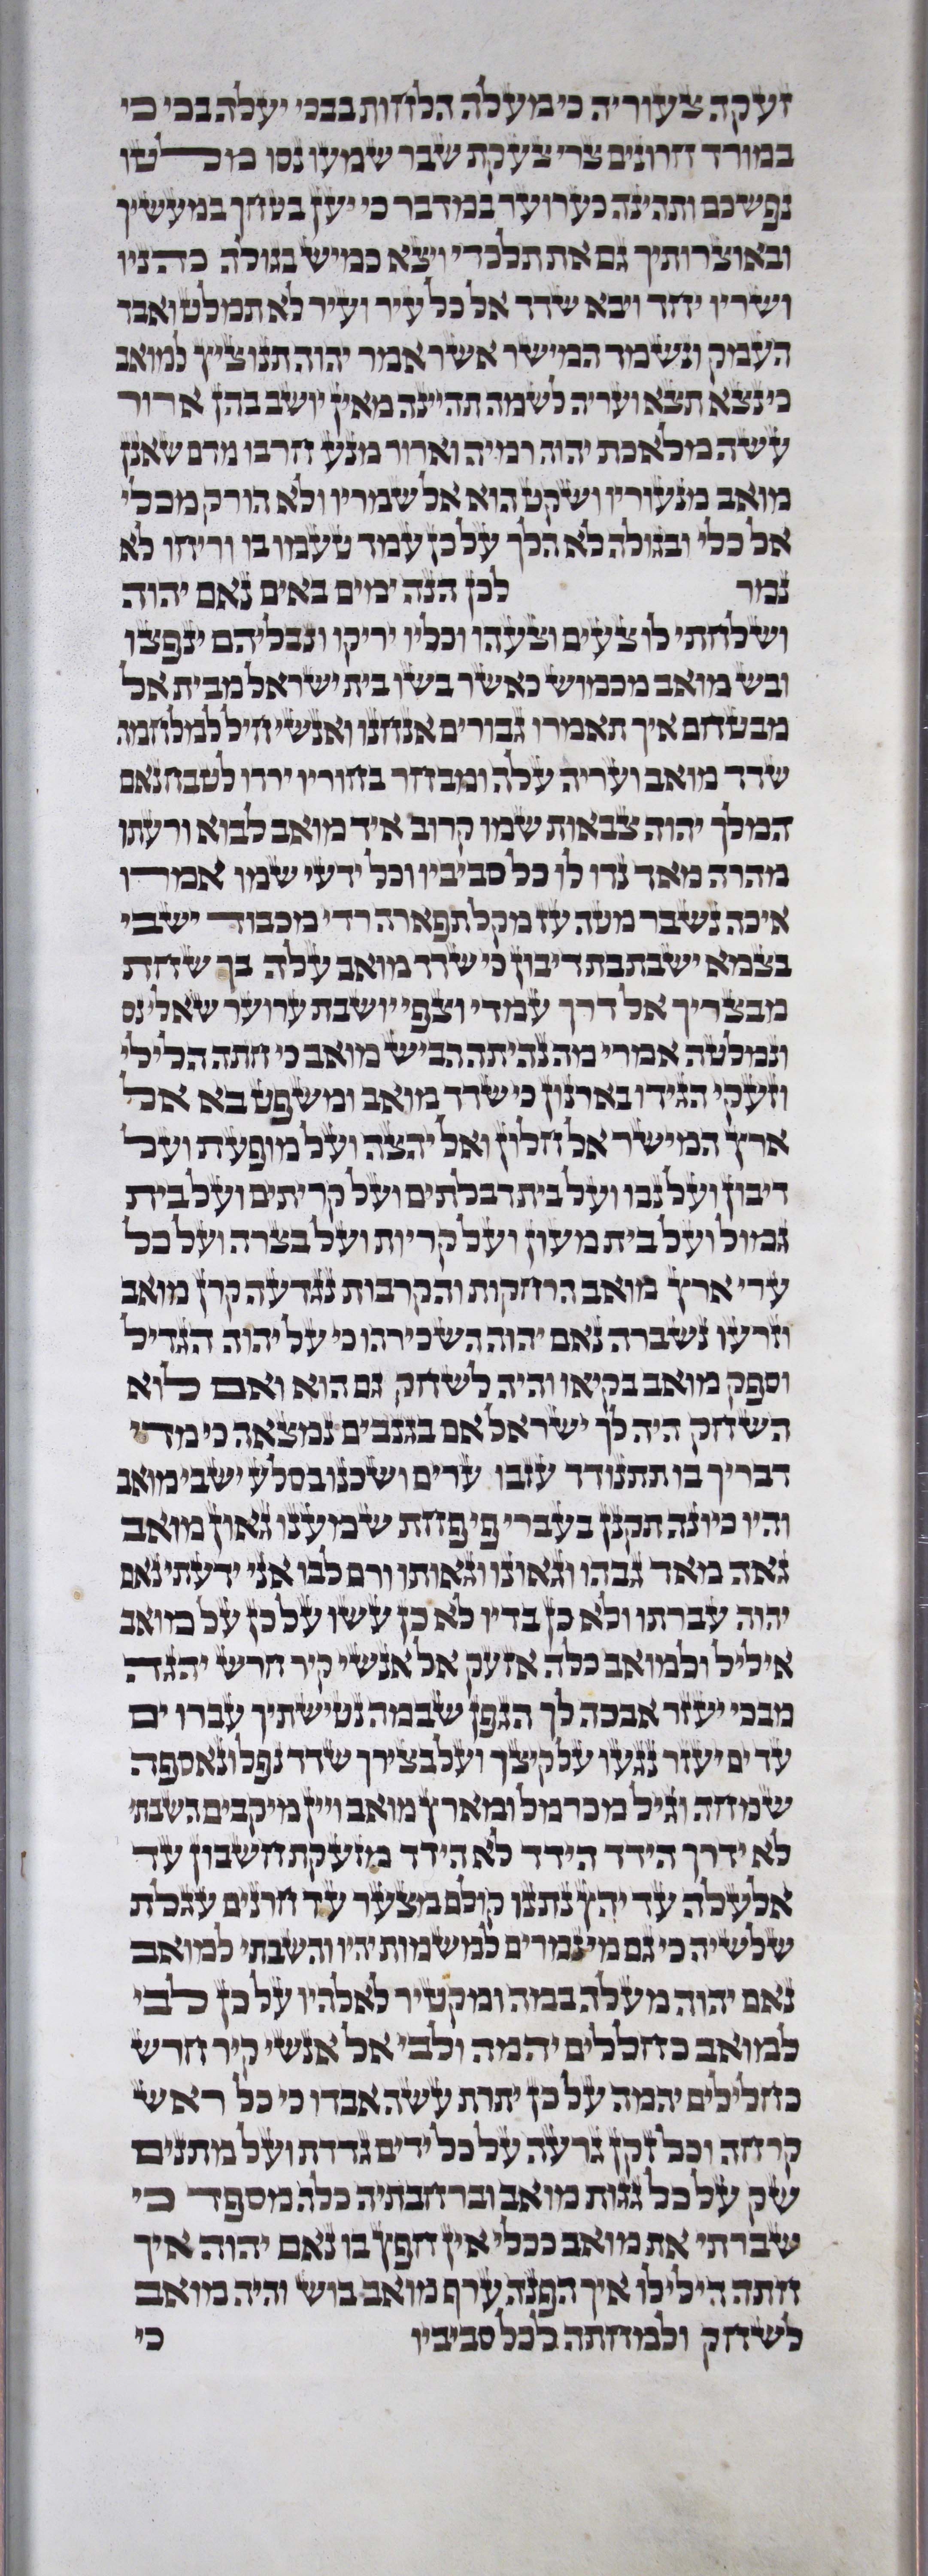 זעקה צעוריה כי מעלה הלחות בבכי יעלה בכי כי
במורד חרונים צרי צעקת שבר שמעו נסו מלטו
נפשכם ותהינה כערוער במדבר כי יען בטחך במעשיך
ובאוצרותיך גם את תלכדי ויצא כמיש בגולה כהניו
ושריו יחד ויבא שדד אל כל עיר ועיר לא תמלט ואבד
העמק ונשמד המישר אשר אמר יהוה תנו ציץ למואב
כי נצא תצא ועריה לשמה תהיינה מאין יושב בהן ארור
עשה מלאכת יהוה רמיה וארור מנע חרבו מדם שאנן
מואב מנעוריו ושקט הוא אל שמריו ולא הורק מכלי
אל כלי ובגולה לא הלך על כן עמד טעמו בו וריחו לא
נמר לכן הנה ימים באים נאם יהוה
ושלחתי לו צעים וצעהו וכליו יריקו ונבליהם ינפצו
ובש מואב מכמוש כאשר בשו בית ישראל מבית אל
מבטחם איך תאמרו גבורים אנחנו ואנשי חיל למלחמה
שדד מואב ועריה עלה ומבחר בחוריו ירדו לטבח נאם
המלך יהוה צבאות שמו קרוב איד מואב לבוא ורעתו
מהרה מאד נדו לו כל סביביו וכל ידעי שמו אמרו
איכה נשבר מטה עז מקל תפארה רדי מכבוד ישבי
בצמא ישבת בת דיבון כי שדד מואב עלה בך שחת
מבצריך אל דרך עמדי וצפי יושבת ערוער שאלי נס
ונמלטה אמרי מה נהיתה הביש מואב כי חתה הלילי
וזעקי הגידו בארנון כי שדד מואב ומשפט בא אל
ארץ המישר אל חלון ואל יהצה ועל מופעת ועל
דיבון ועל נבו ועל בית דבלתים ועל קריתים ועל בית
גמול ועל בית מעון ועל קריות ועל בצרה ועל כל
ערי ארץ מואב הרחקות והקרבות נגדעה קרן מואב
וזרעו נשברה נאם יהוה השכירהו כי על יהוה הגדיל
וספק מואב בקיאו והיה לשחק גם הוא ואם לוא
השחק היה לך ישראל אם בגנבים נמצאה כי מדי
דבריך בו תתנודד עזבו ערים ושכנו בסלע ישבי מואב
והיו כיונה תקנן בעברי פי פחת שמענו גאון מואב
גאה מאד גבהו וגאונו וגאותו ורם לבו אני ידעתי נאם
יהוה עברתו ולא כן בדיו לא כן עשו על כן על מואב
איליל ולמואב כלה אזעק אל אנשי קיר חרש יהגה
מבכי יעזר אבכה לך הגפן שבמה נטישתיך עברו ים
עד ים יעזר נגעו על קיצך ועל בצירך שדד נפל ונאספה
שמחה וגיל מכרמל ומארץ מואב ויין מיקבים השבתי
לא ידרך הידד הידד לא הידד מזעקת חשבון עד
אלעלה עד יהץ נתנו קולם מצער עד חרנים עגלת
שלשיה כי גם מי נמרים למשמות יהיו והשבתי למואב
נאם יהוה מעלה במה ומקטיר לאלהיו על כן לבי
למואב כחללים יהמה ולבי אל אנשי קיר חרש
כחלילים יהמה על כן יתרת עשה אבדו כי כל ראש
קרחה וכל זקן גרעה על כל ידים גדדת ועל מתנים
שק על כל גגות מואב וברחבתיה כלה מספד כי
שברתי את מואב ככלי אין חפץ בו נאם יהוה איך
חתה הילילו איך הפנה ערף מואב בוש והיה מואב
לשחק ולמחתה לכל סביביו כי